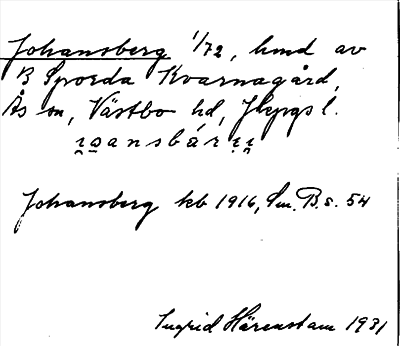 Johansberg 1/72, hmd av
B Sporda Kvarnagård,
Ås sn, Västbo hd, Jkpgs l.
Johansberg kb 1916, Sm. B. s. 54
Ingrid Härenstam 1931